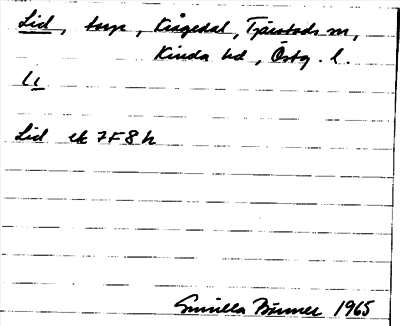 Lid, torp, Kisgedal, Tjärstads sn,
Kinda hd, Östg. l.
Lid ek 7F8h
Gunilla Bänner 1965